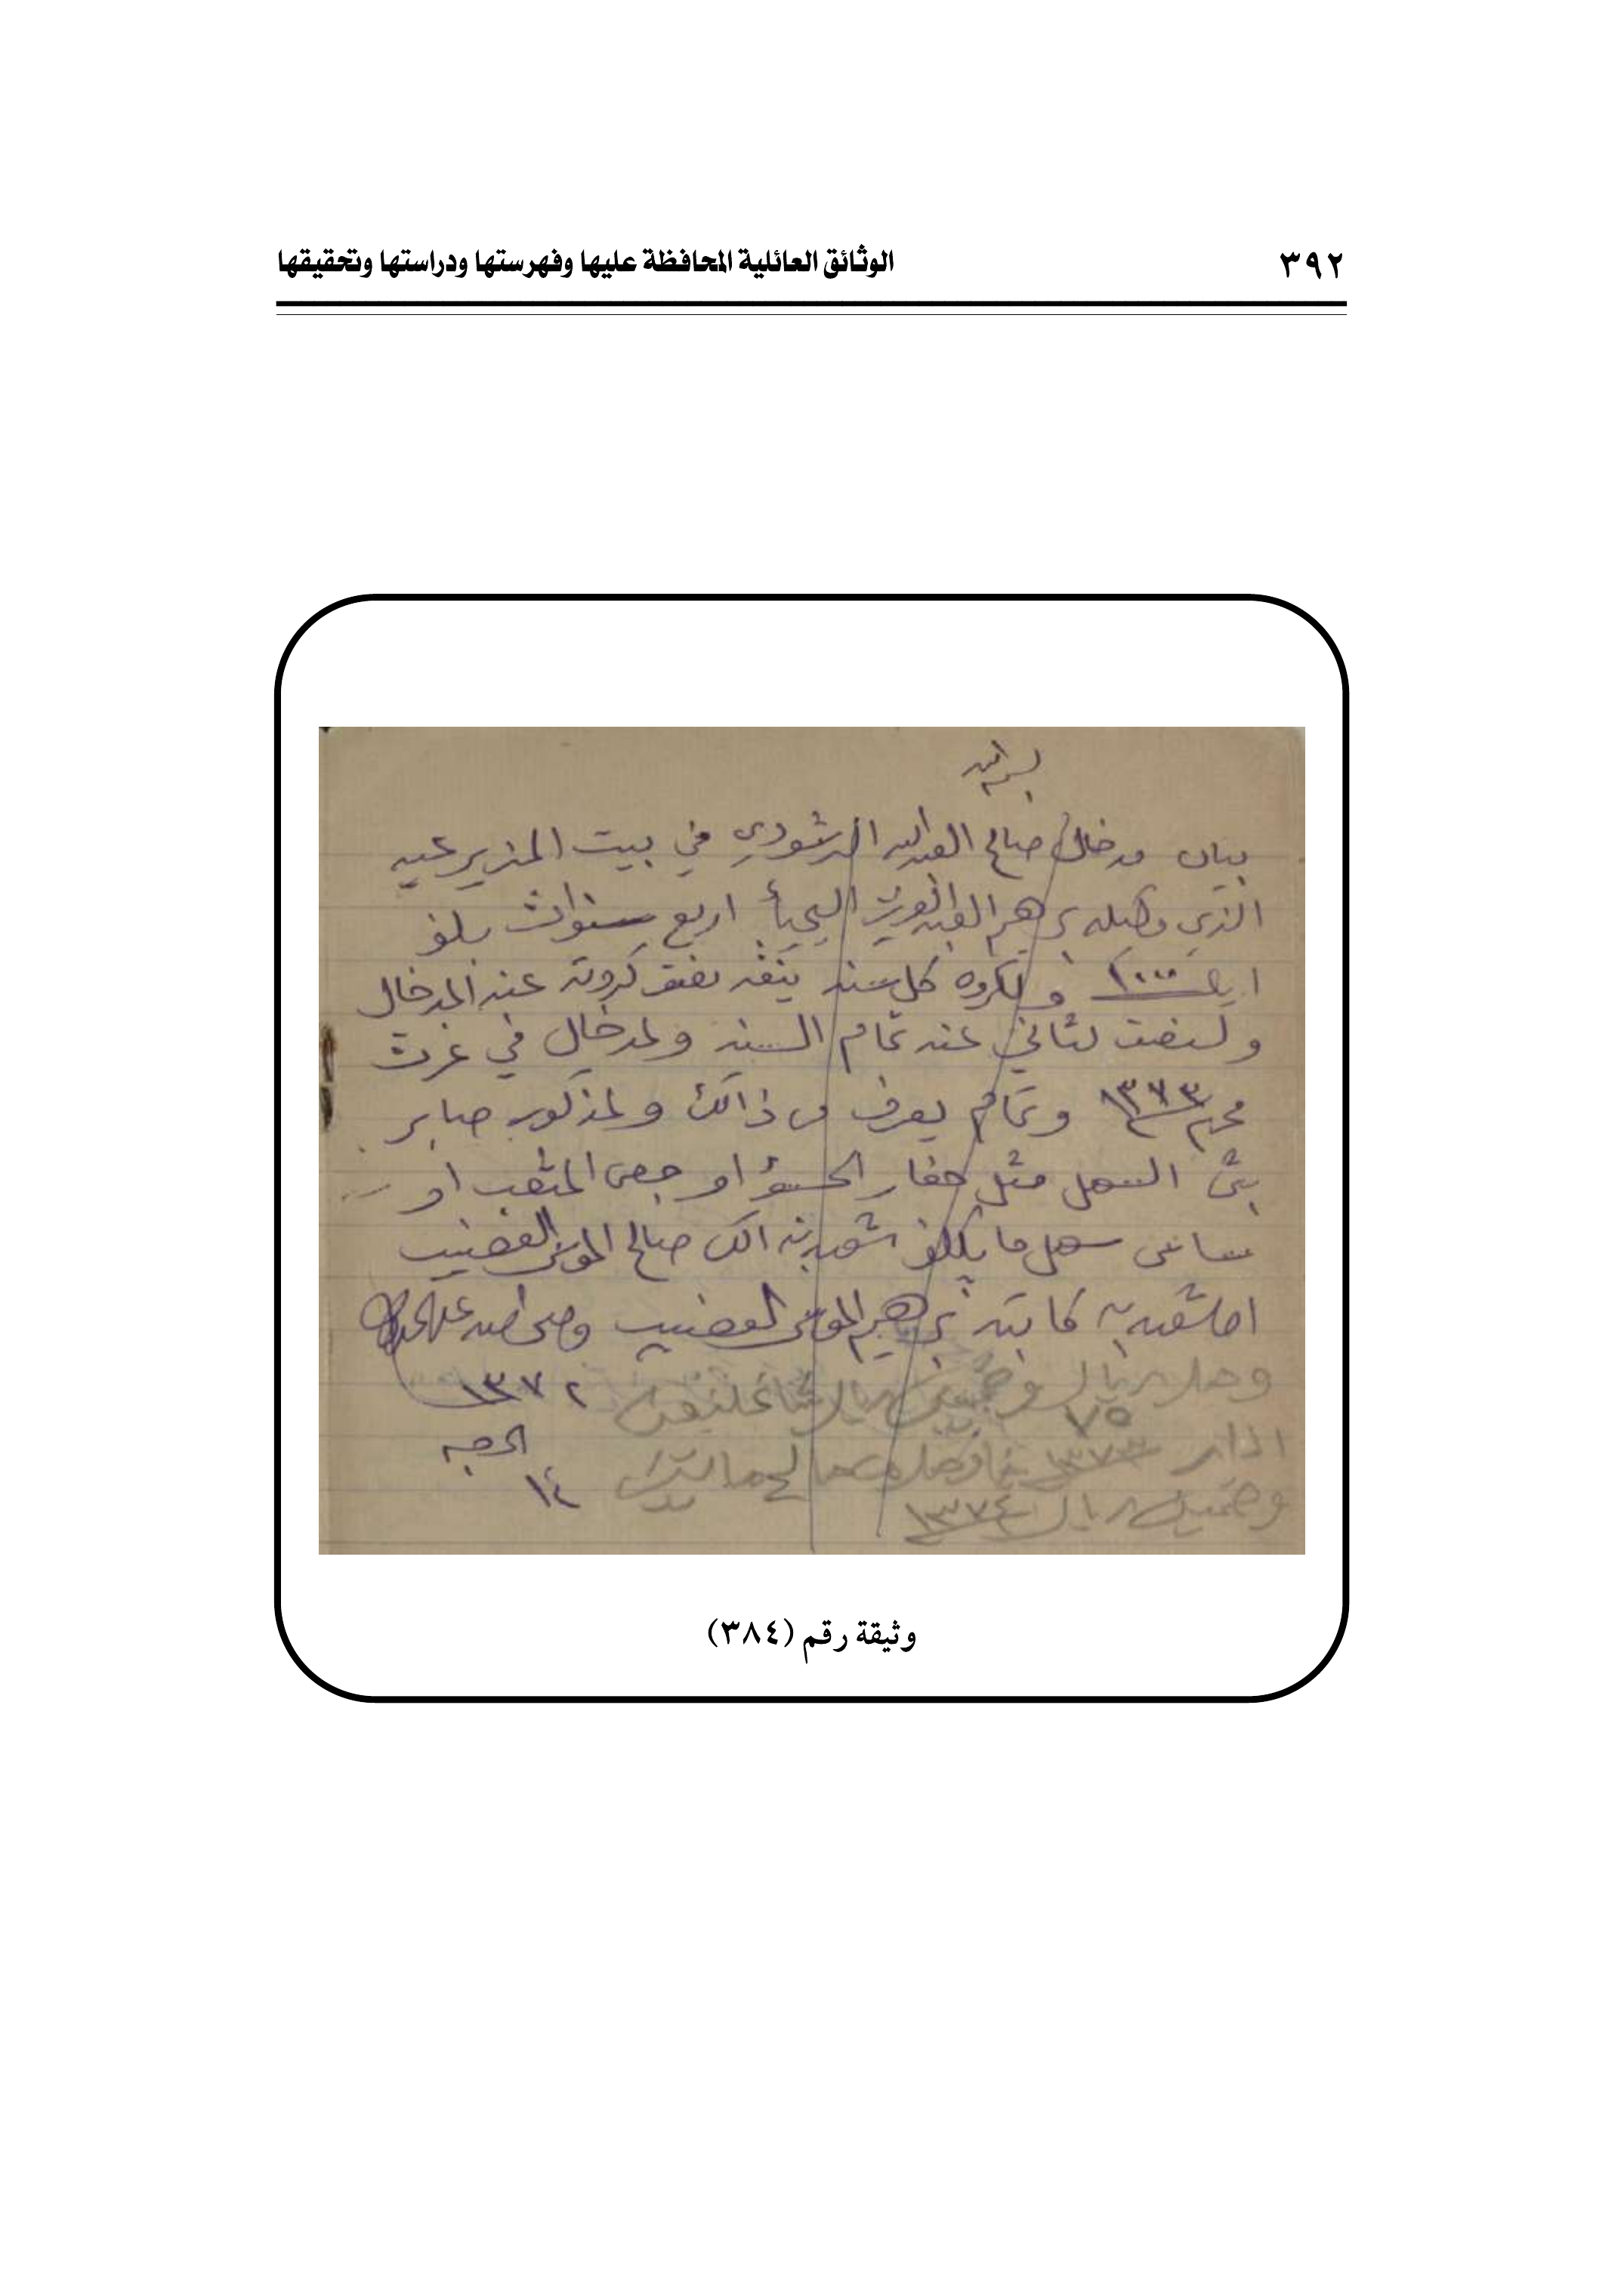 ٣٩٢ الوثائق العائلية المحافظة عليها وفهرستها ودراستها وتحقيقها
بسم الله
بيان مدخال صالح العبدالله الرشودي في بيت المزيرعيه
الذي وكيله برهيم العبدالعزيز اليحيأ اربع سنوات بلغو
اريل ١٠٠٠ ولكروه كل سنه ينقد نصف كروته عند المدخال
ولنصف لثاني عند تمام السنه ولمدخال في غرت
محرم ١٣٧٣ وتمام يعرف من ذالك ولمذكور صابر
بشي السهل مثل حفار الحسو او جص المثعب او
ساس سهل ما يكلف شهد بذالك صالح الموسى العضيب
اصل شهد به كاتبه برهيم الموسى العضيب وصلى الله على محمد
١٣٧٢
الحجه
١٤
وصل ريال
٧٥
١٣٧٣
وخمسين ريال ١٣٧٤
وثيقة رقم (٣٨٤)